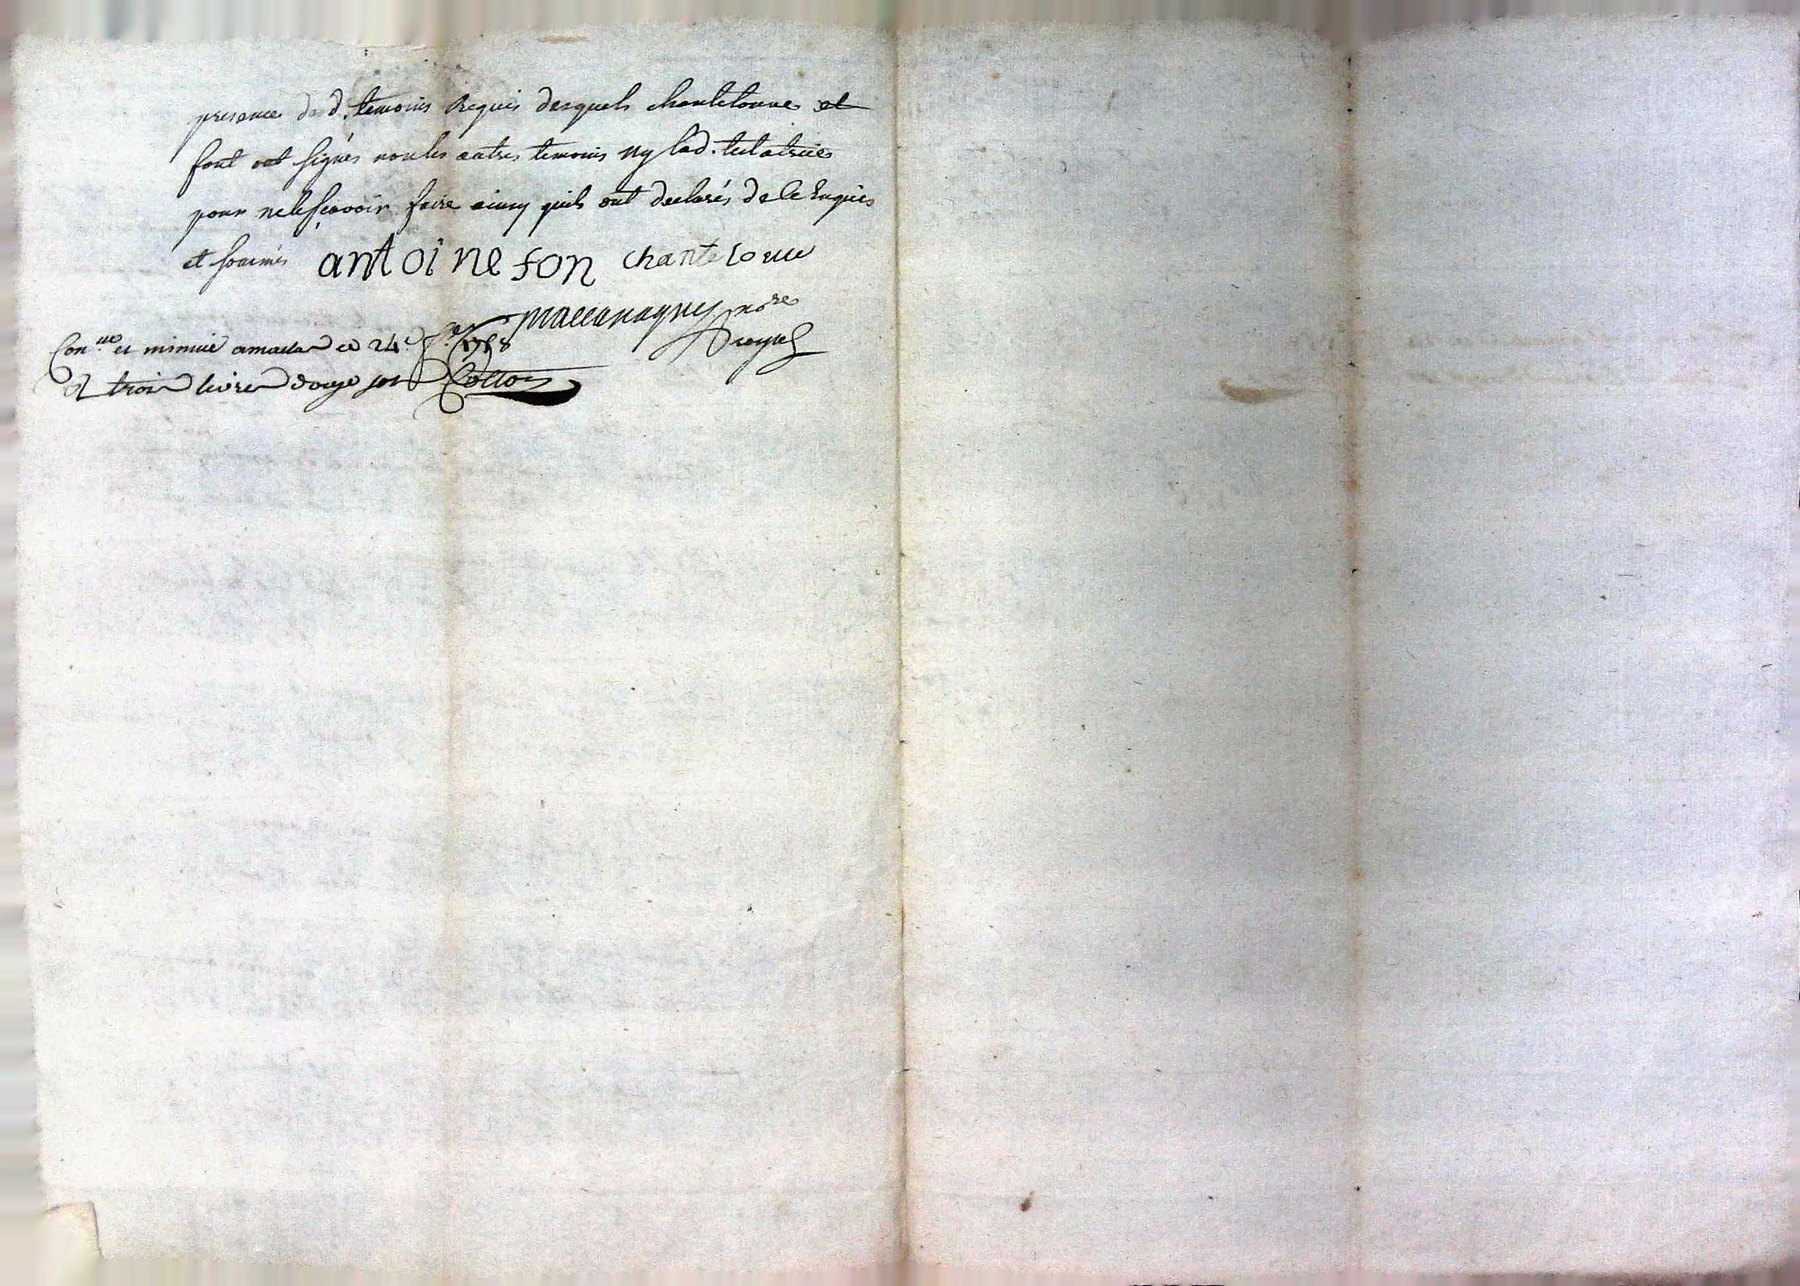 presence de d. temoins Requis desquels chantelouve et
font ont signés non les autres temoins ny lad. tutatrice
pour ne le scavoir faire ainsy quils ont declarés de ce Enquis
et sommés antoine fon chantelouue
nore
Con.lle et minuté a 24e 1758
R trois livres douze sols